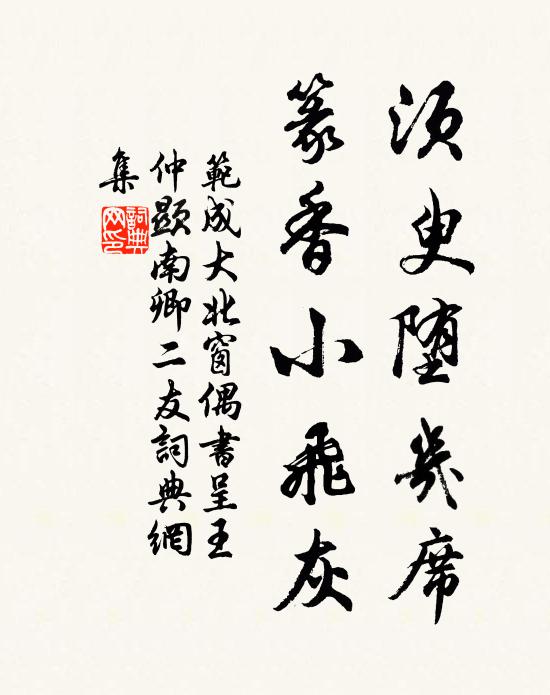 須臾墮幾席
篆香小飛灰
範成大北窗偶書呈王
仲顯南卿二友詞典網
集
詞典
网印